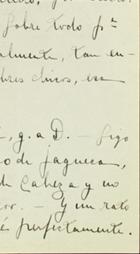 Sobre todo pa
almente, tan en-
bres chicos, era
, g. a D. — Sigo
o de jaqueca,
de Cabeza y no
or. — Y un rato
é perfectamente.